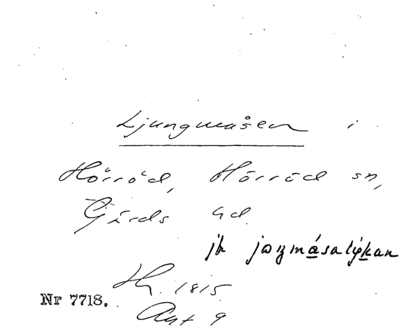 Ljungmåsen i
Hörröd, Hörröd sn,
Gärds hd.
jk jaŋmåsalýkan
Hy. 1815.
Nr 7718.
Akt 9